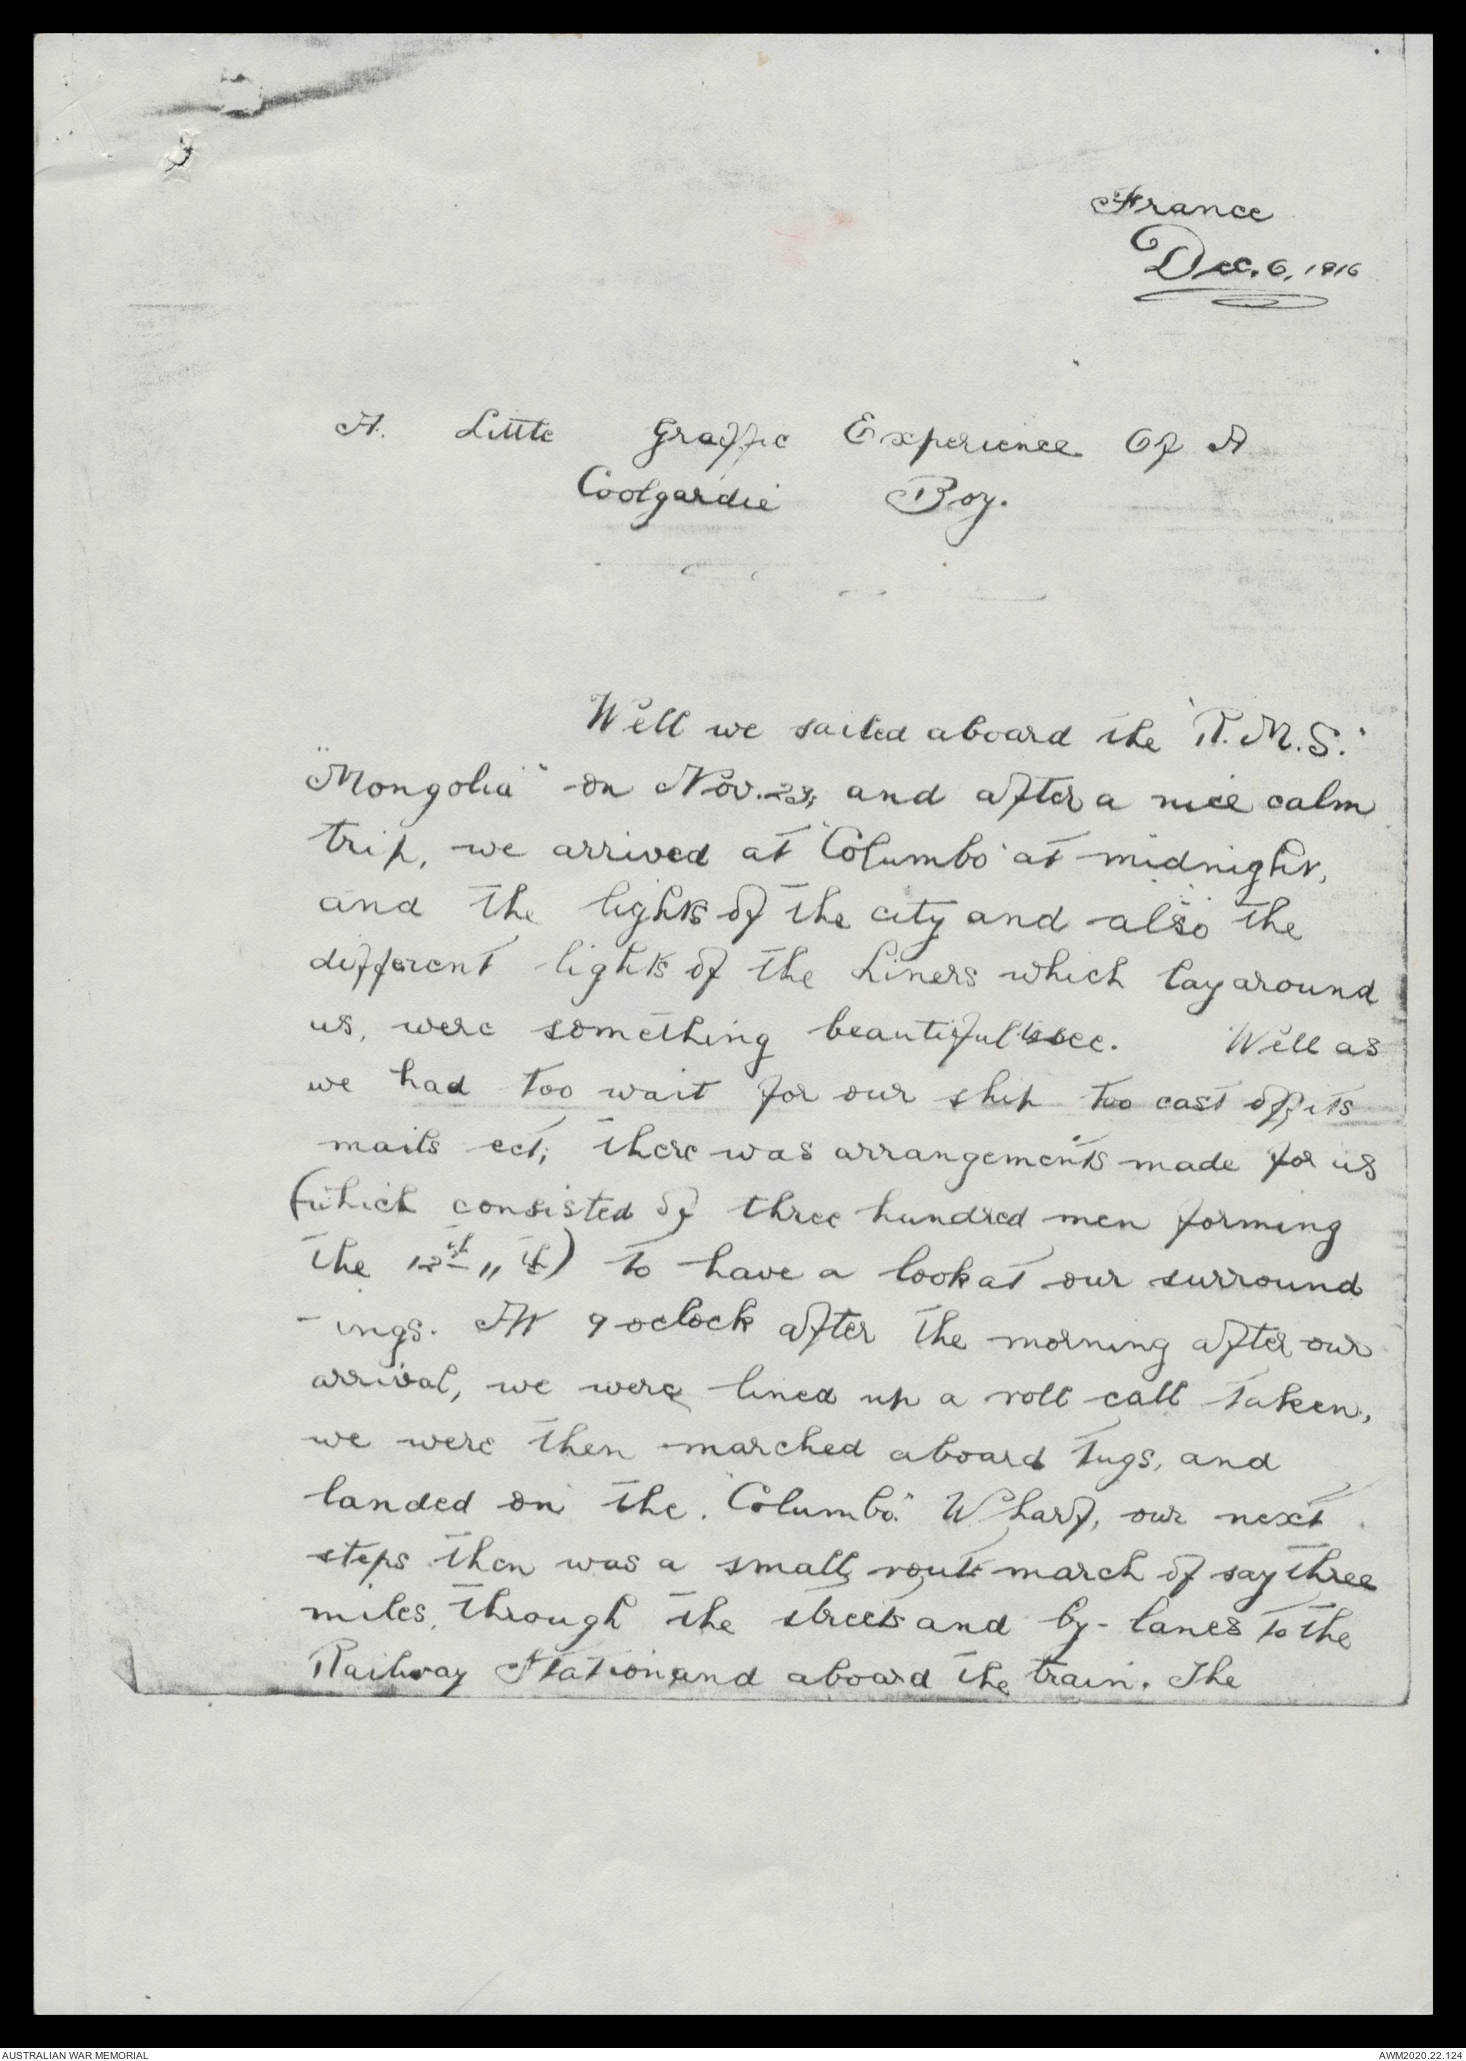 France
Dec. 6, 1916
A. Little Graffic Experience Of A
Coolgardie Boy.
Well we sailed aboard the "R.M.S."
"Mongolia" on Nov. 23, and after a nice calm
trip, we arrived at "Columbo" at midnight,
and the lights of the city and also the
different lights of the Liners which lay around
us, were something beautiful to see. Well as
we had too wait for our ship too cast off its
mails ect; there was arrangements made for us
(which consisted of three hundred men forming
the 12th 11th) to have a look at our surround
-ings. At 9 oclock after the morning after our
arrival, we were lined up a roll call taken,
we were then marched aboard tugs, and
landed on the "Columbo" Wharf, our next
steps then was a small route march of say three
miles, through the streets and by-lanes to the
Railway Station and aboard the train. The
AUSTRALIAN WAR MEMORIAL
AWM2020.22.124